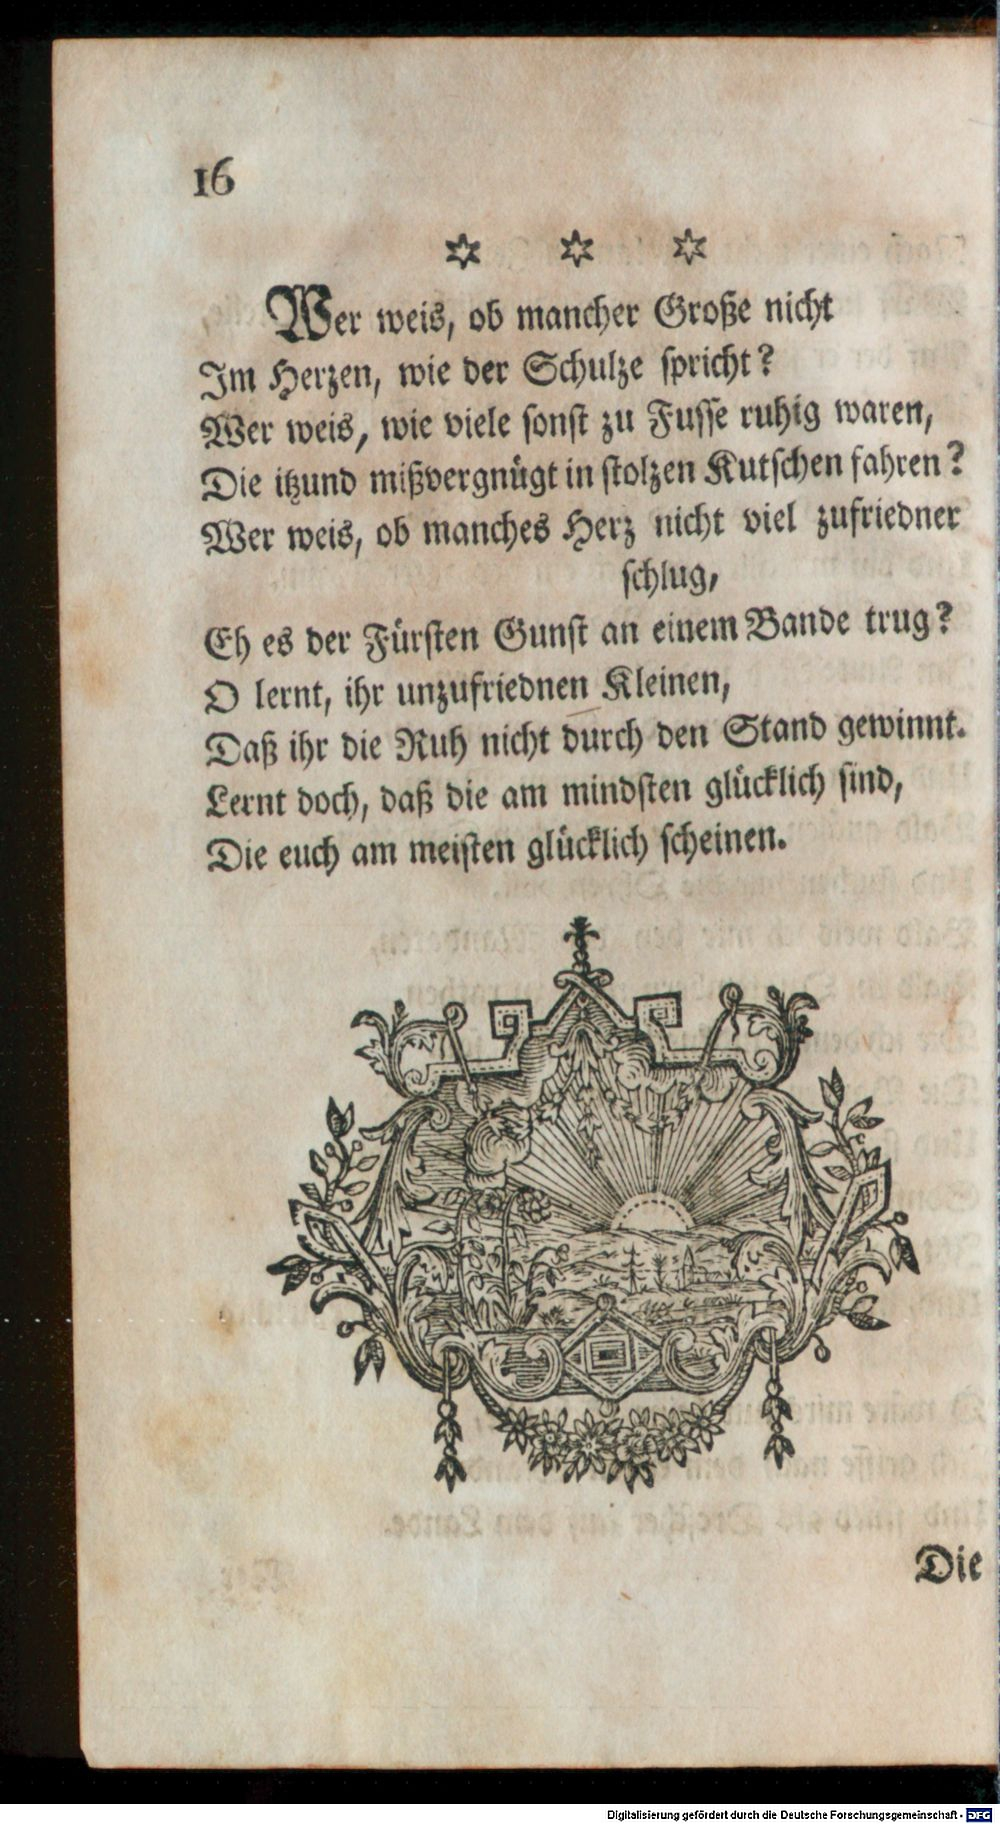 16
Wer weis, ob mancher Große nicht
Im Herzen, wie der Schulze spricht?
Wer weis, wie viele sonst zu Fusse ruhig waren,
Die itzund mißvergnügt in stolzen Kutschen fahren?
Wer weis, ob manches Herz nicht viel zufriedner
schlug,
Eh es der Fürsten Gunst an einem Bande trug?
O lernt, ihr unzufriednen Kleinen,
Daß ihr die Ruh nicht durch den Stand gewinnt.
Lernt doch, daß die am mindsten glücklich sind,
Die euch am meisten glücklich scheinen.
Die
Digitalisierung gefördert durch die Deutsche Forschungsgemeinschaft - DFG